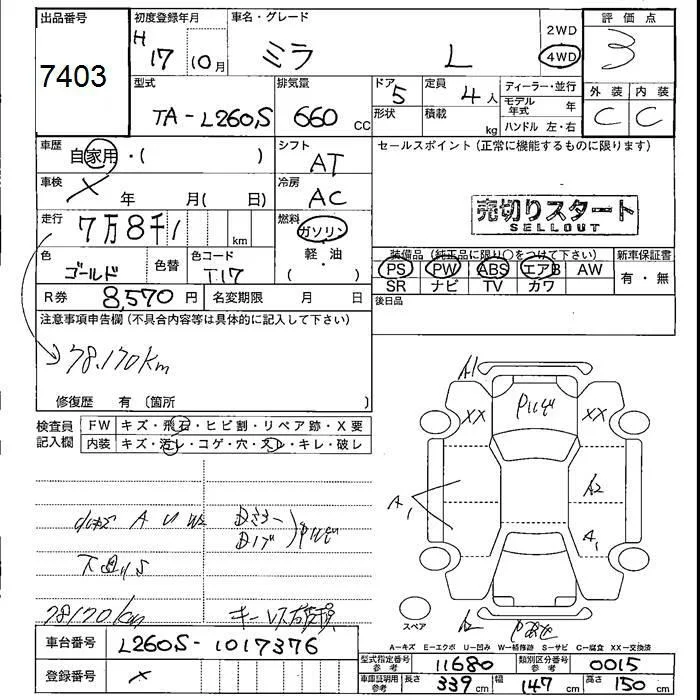 出品番号
7403
初度登録年月
H 17 10月
車名・グレード
ミラ L
2WD
4WD
評価点
3
外装 内装
C C
型式
TA-L260S
排気量
660 CC
ドア
5
形状
定員
4人
積載
kg
ディーラー・並行
モデル年式 年
ハンドル 左・右
車歴
自家用・( )
シフト
AT
セールスポイント(正常に機能するものに限ります)
車検
X 年 月( 日)
冷房
AC
売切りスタート
SELLOUT
走行
7万8千1 km
燃料
ガソリン
軽・油
( ・ )
色
ゴールド
色替
色コード
T17
装備品(純正品に限り○をつけて下さい)
PS PW ABS エアB AW
SR ナビ TV カワ
新車保証書
有・無
R券
8,570円
名変期限 月 日
後日品
注意事項申告欄(不具合内容等は具体的に記入して下さい)
78,170km
修復歴 有 〔箇所 〕
検査員記入欄
FW キズ・飛石・ヒビ割・リペア跡・X要
内装 キズ・汚レ・コゲ・穴・スレ・キレ・破レ
A1
XX
XX
A1
A2
A1
A2
スペア
A U W2
78170km
キーレス
A-キズ E-エクボ U-凹み W-補修跡 S-サビ C-腐食 XX-交換済
車台番号
L260S-1017376
登録番号
X
型式指定番号 参考
11680
類別区分番号 参考
0015
車庫証明用 参考
長さ 339cm
幅 147cm
高さ 150cm